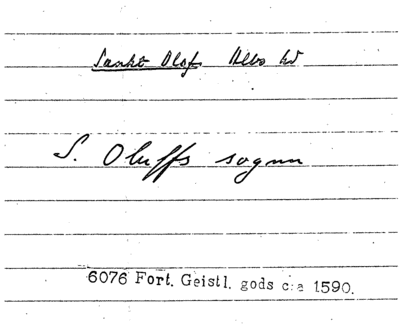 Sankt Olof Albo hd
S. Oluffs sognn
6076 Fort. Geistl. gods c:a 1590.